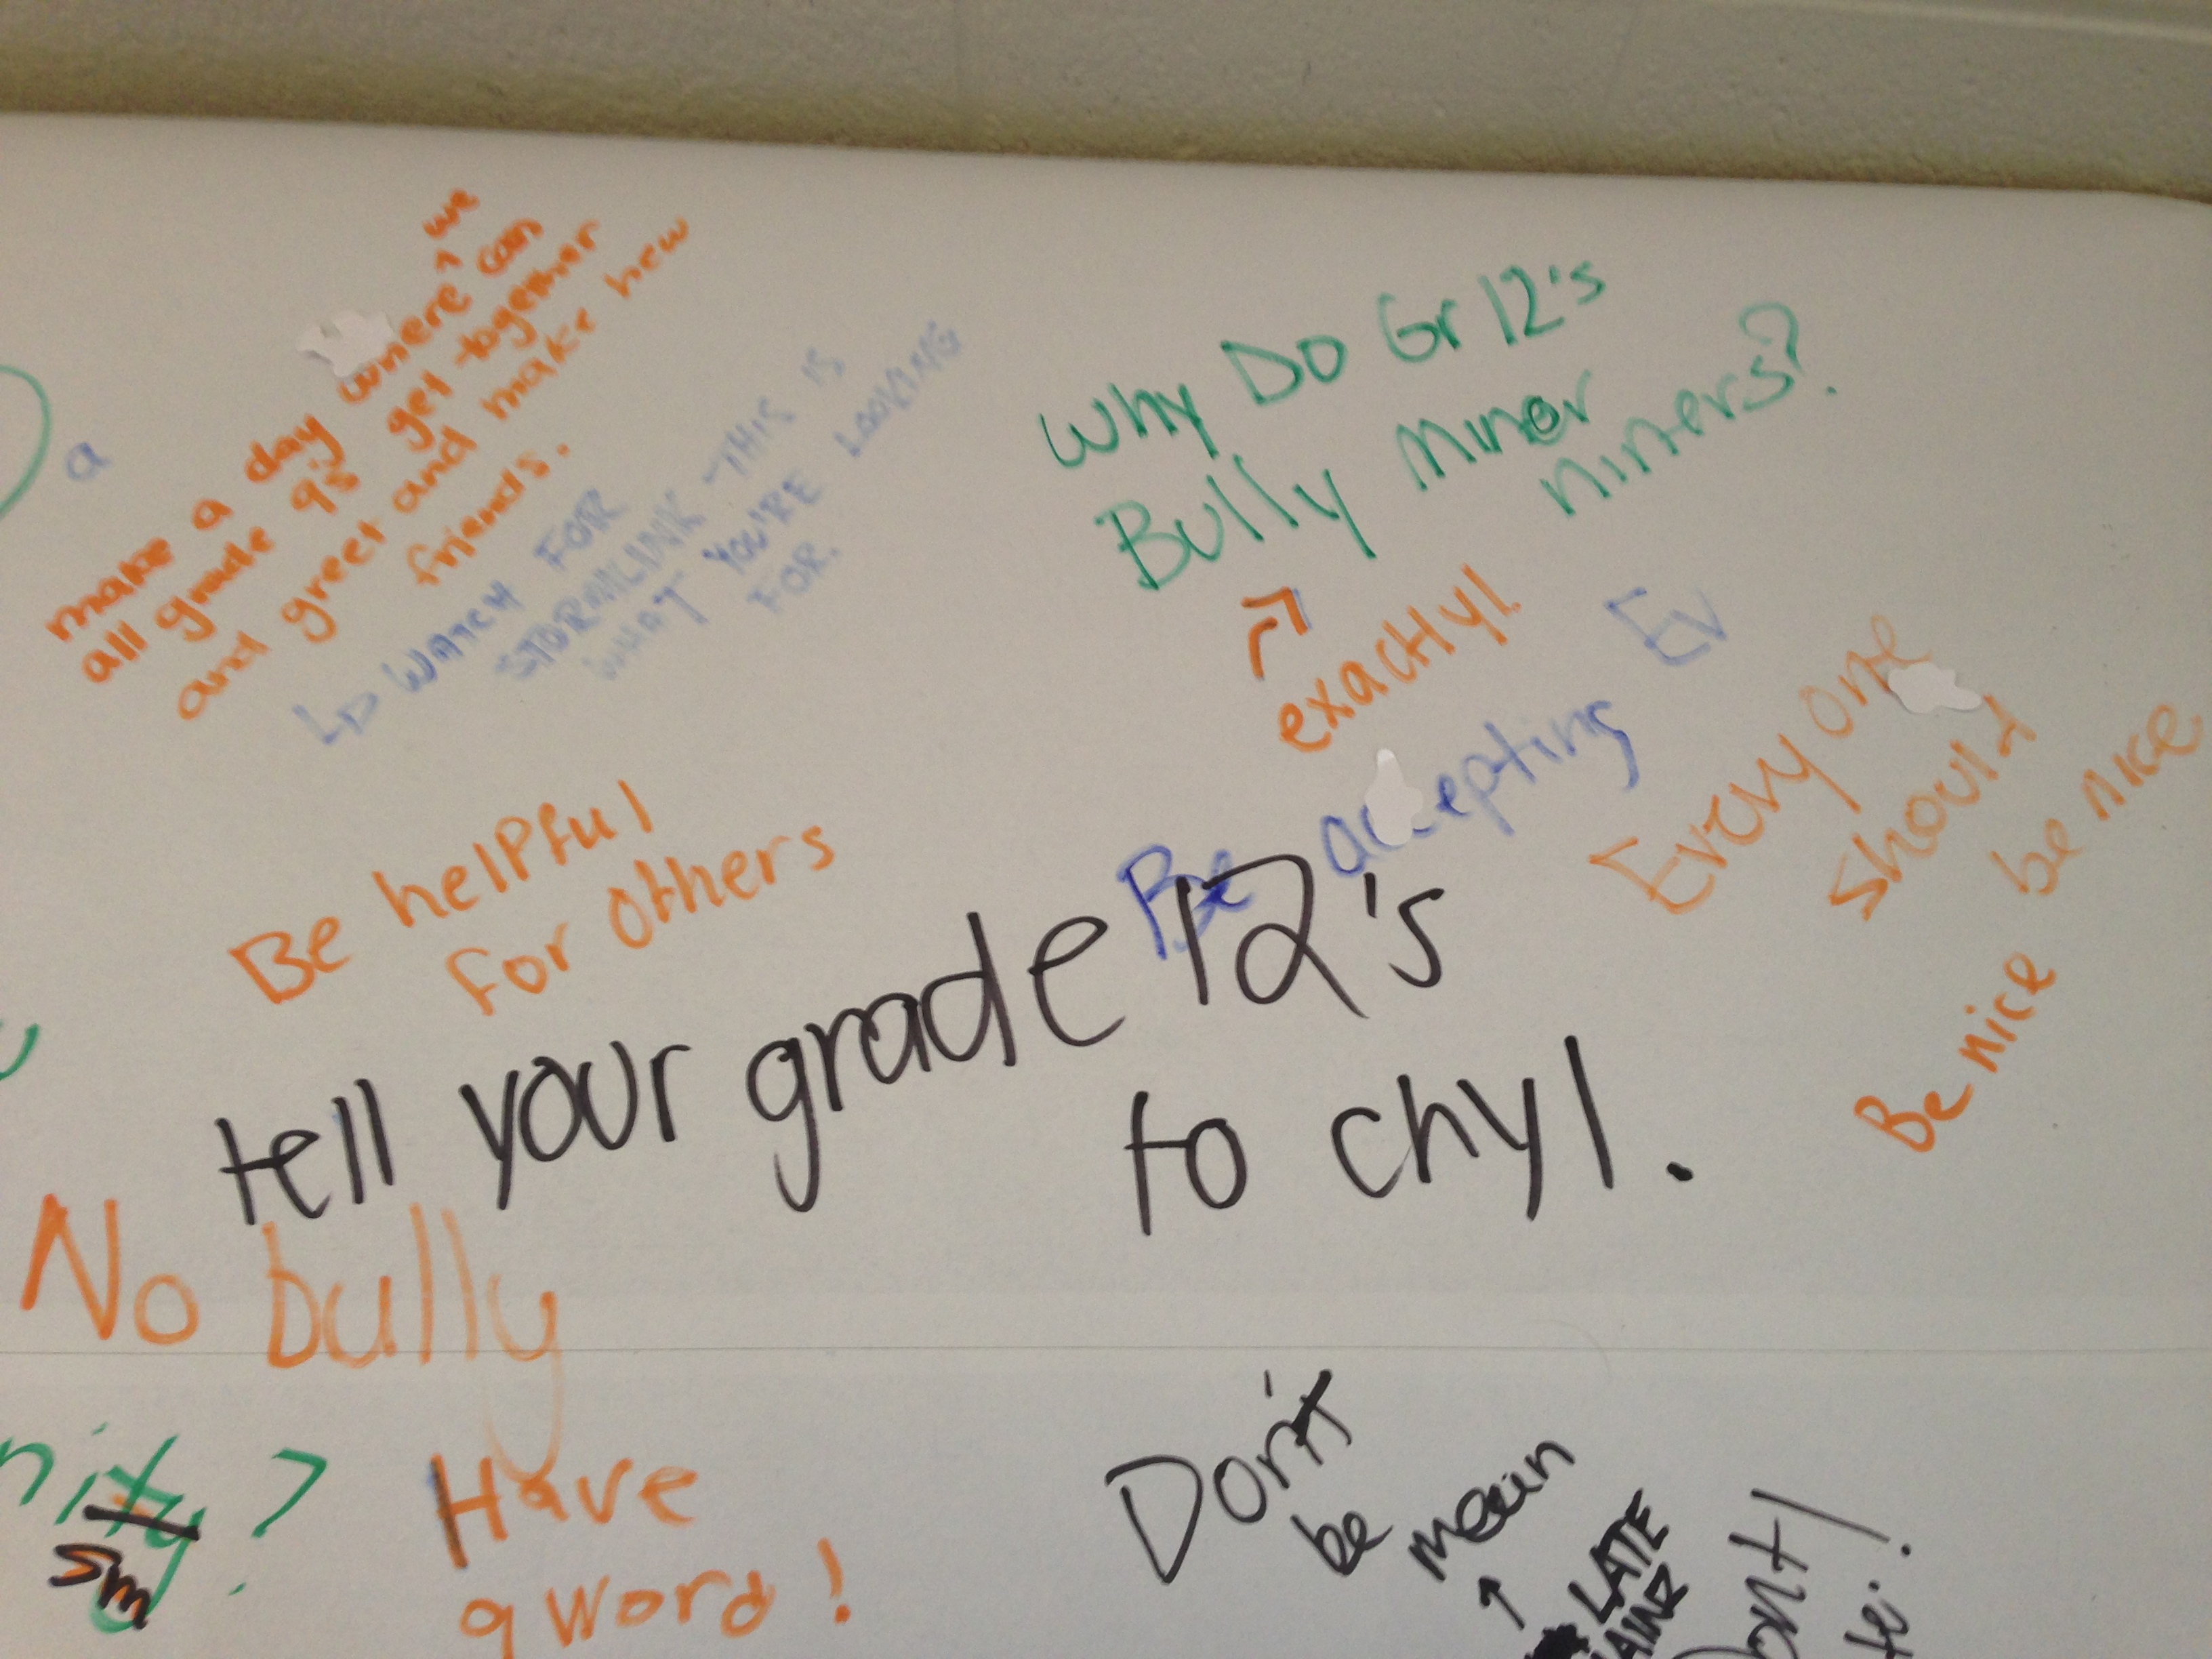 make a day where we can
all grade 9's get together
and greet and make new
friends.
WATCH FOR
STORMLINK - THIS IS
WHAT YOU'RE LOOKING
FOR.
a
Why Do Gr 12's
Bully Minor
niners?
exactly!
Ev
Be accepting
Every one
should
be nice
Be nice
Be helpful
For others
tell your grade 12's
to chyl.
No bully
Have
a word!
Don't
be
mean
LATE